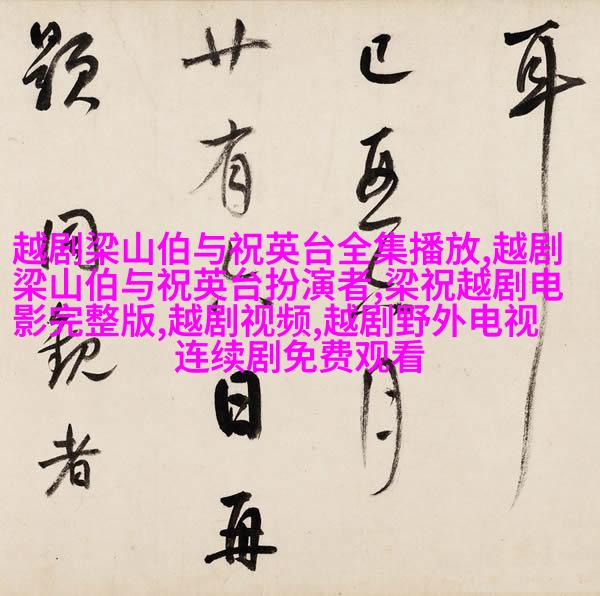 越剧梁山伯与祝英台全集播放,越剧
梁山伯与祝英台扮演者,梁祝越剧电
影完整版,越剧视频,越剧野外电视
连续剧免费观看
耳
己月
廿有日再
題同觀者